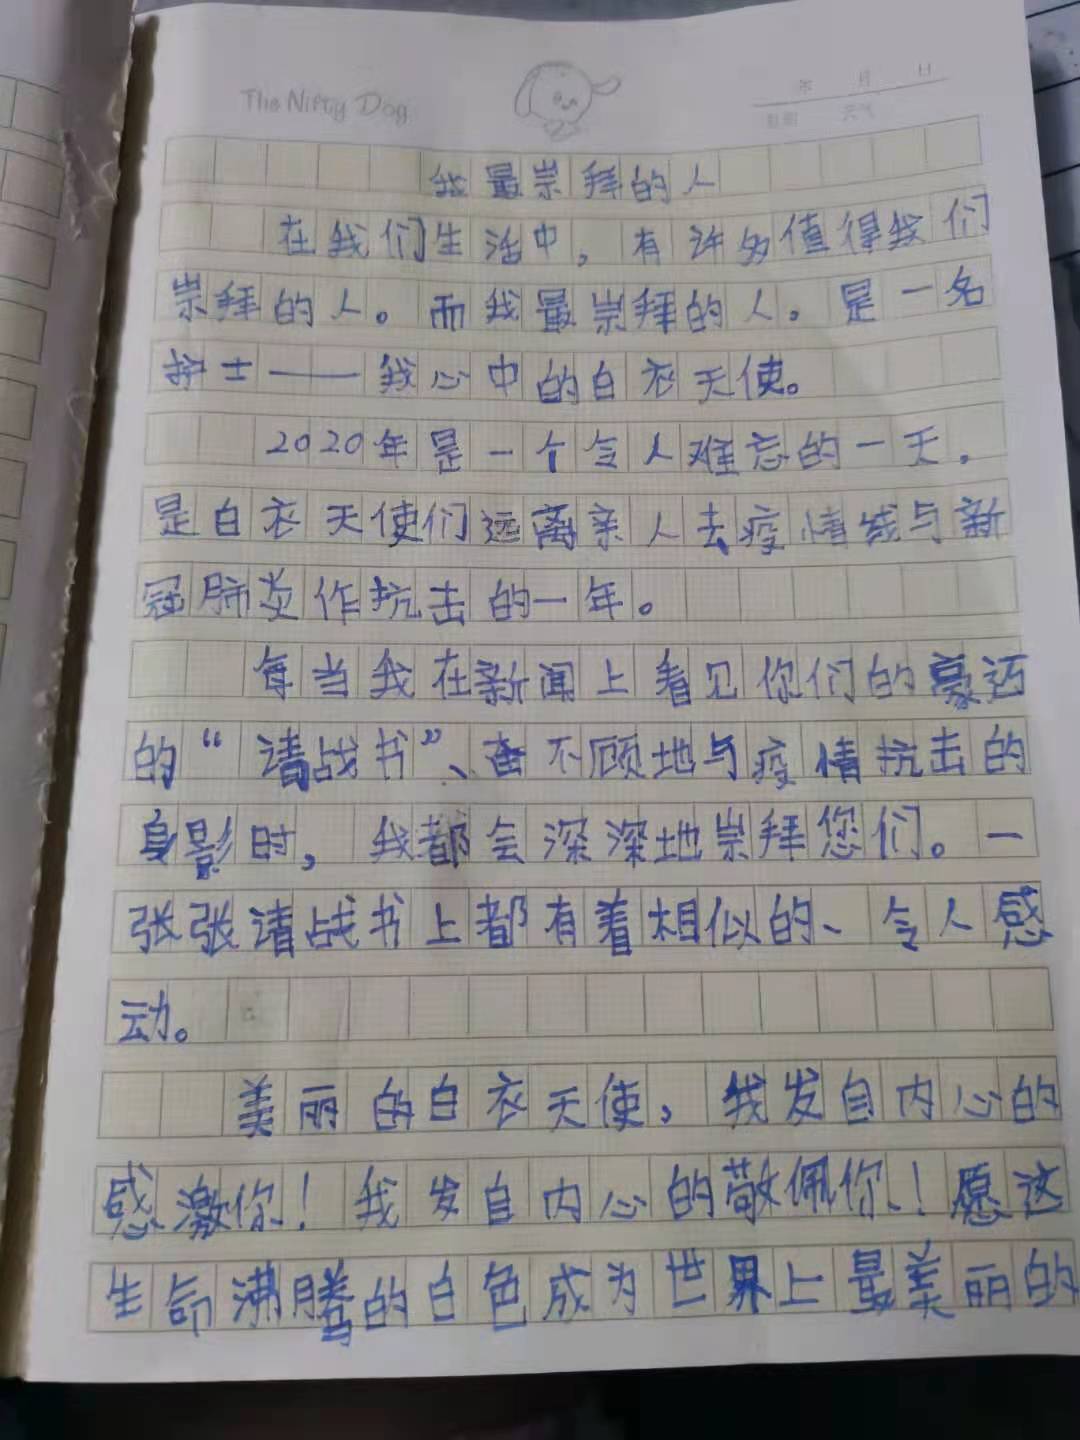 The Nifty Dog
年 月 日
星期 天气
我最崇拜的人
在我们生活中，有许多值得我们
崇拜的人。而我最崇拜的人。是一名
护士——我心中的白衣天使。
2020年是一个令人难忘的一天，
是白衣天使们远离亲人去疫情线与新
冠肺炎作抗击的一年。
每当我在新闻上看见你们的豪迈
的“请战书”、奋不顾地与疫情抗击的
身影时，我都会深深地崇拜您们。一
张张请战书上都有着相似的、令人感
动。
美丽的白衣天使，我发自内心的
感激你！我发自内心的敬佩你！愿这
生命沸腾的白色成为世界上最美丽的